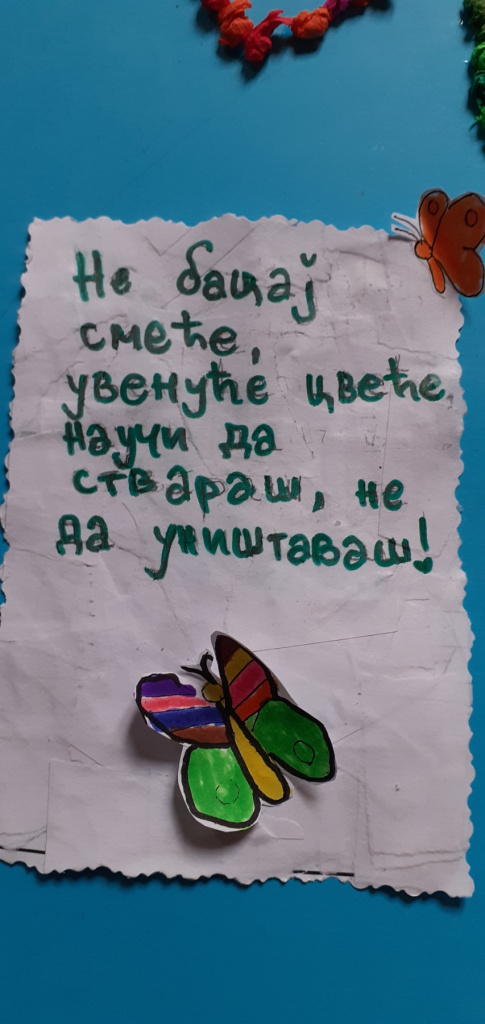 Не бацај
смеће,
увенуће цвеће,
научи да
ствараш, не
да уништаваш!